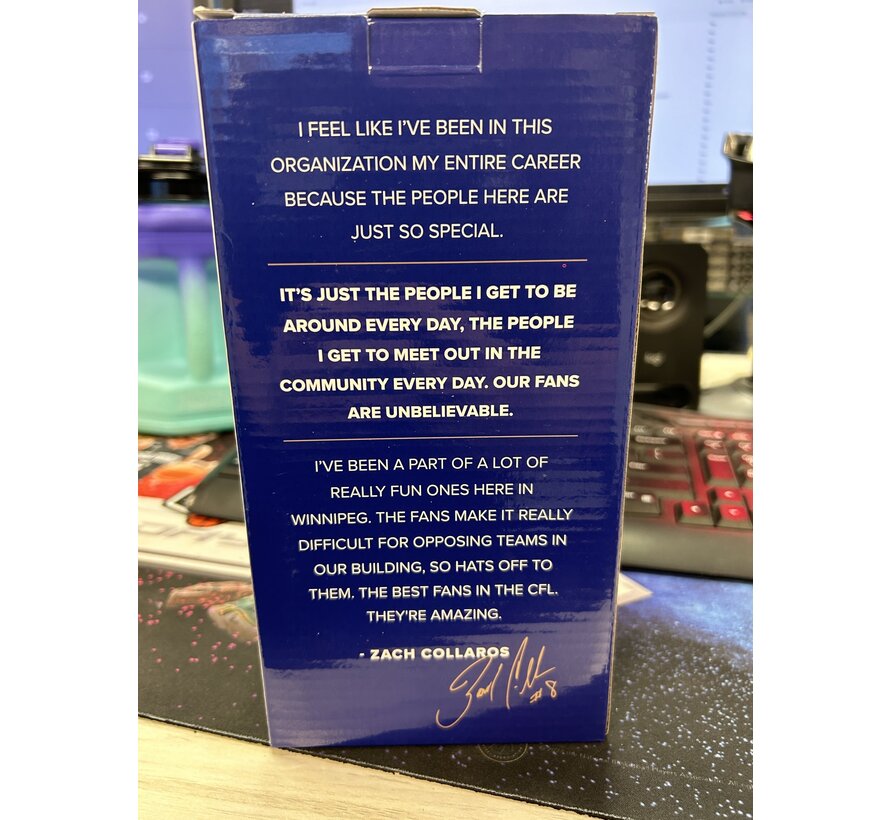 I FEEL LIKE I'VE BEEN IN THIS
ORGANIZATION MY ENTIRE CAREER
BECAUSE THE PEOPLE HERE ARE
JUST SO SPECIAL.
IT'S JUST THE PEOPLE I GET TO BE
AROUND EVERY DAY, THE PEOPLE
I GET TO MEET OUT IN THE
COMMUNITY EVERY DAY. OUR FANS
ARE UNBELIEVABLE.
I'VE BEEN A PART OF A LOT OF
REALLY FUN ONES HERE IN
WINNIPEG. THE FANS MAKE IT REALLY
DIFFICULT FOR OPPOSING TEAMS IN
OUR BUILDING, SO HATS OFF TO
THEM. THE BEST FANS IN THE CFL.
THEY'RE AMAZING.
- ZACH COLLAROS
#8